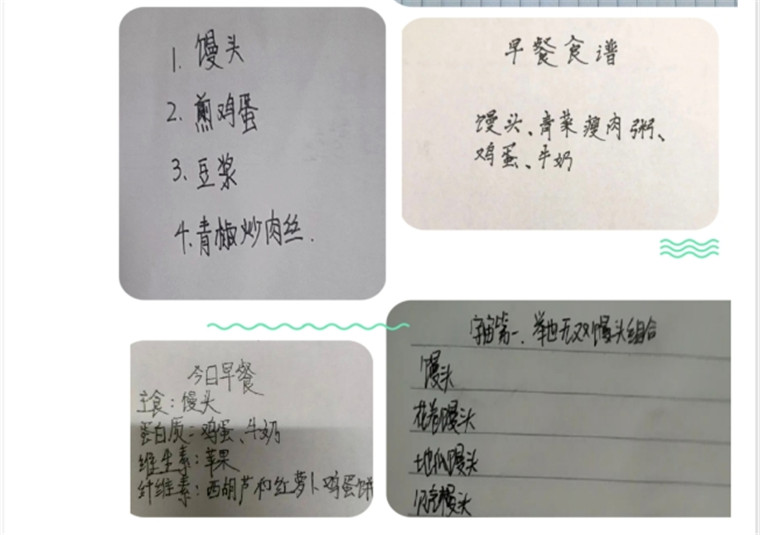 1. 馒头
2. 煎鸡蛋
3. 豆浆
4. 青椒炒肉丝.
早餐食谱
馒头、青菜瘦肉粥、
鸡蛋、牛奶
今日早餐
主食：馒头
蛋白质：鸡蛋、牛奶
维生素：苹果
纤维素：西胡芦和红萝卜鸡蛋饼
宇宙第一、举世无双馒头组合
馒头
花卷馒头
地瓜馒头
馒头